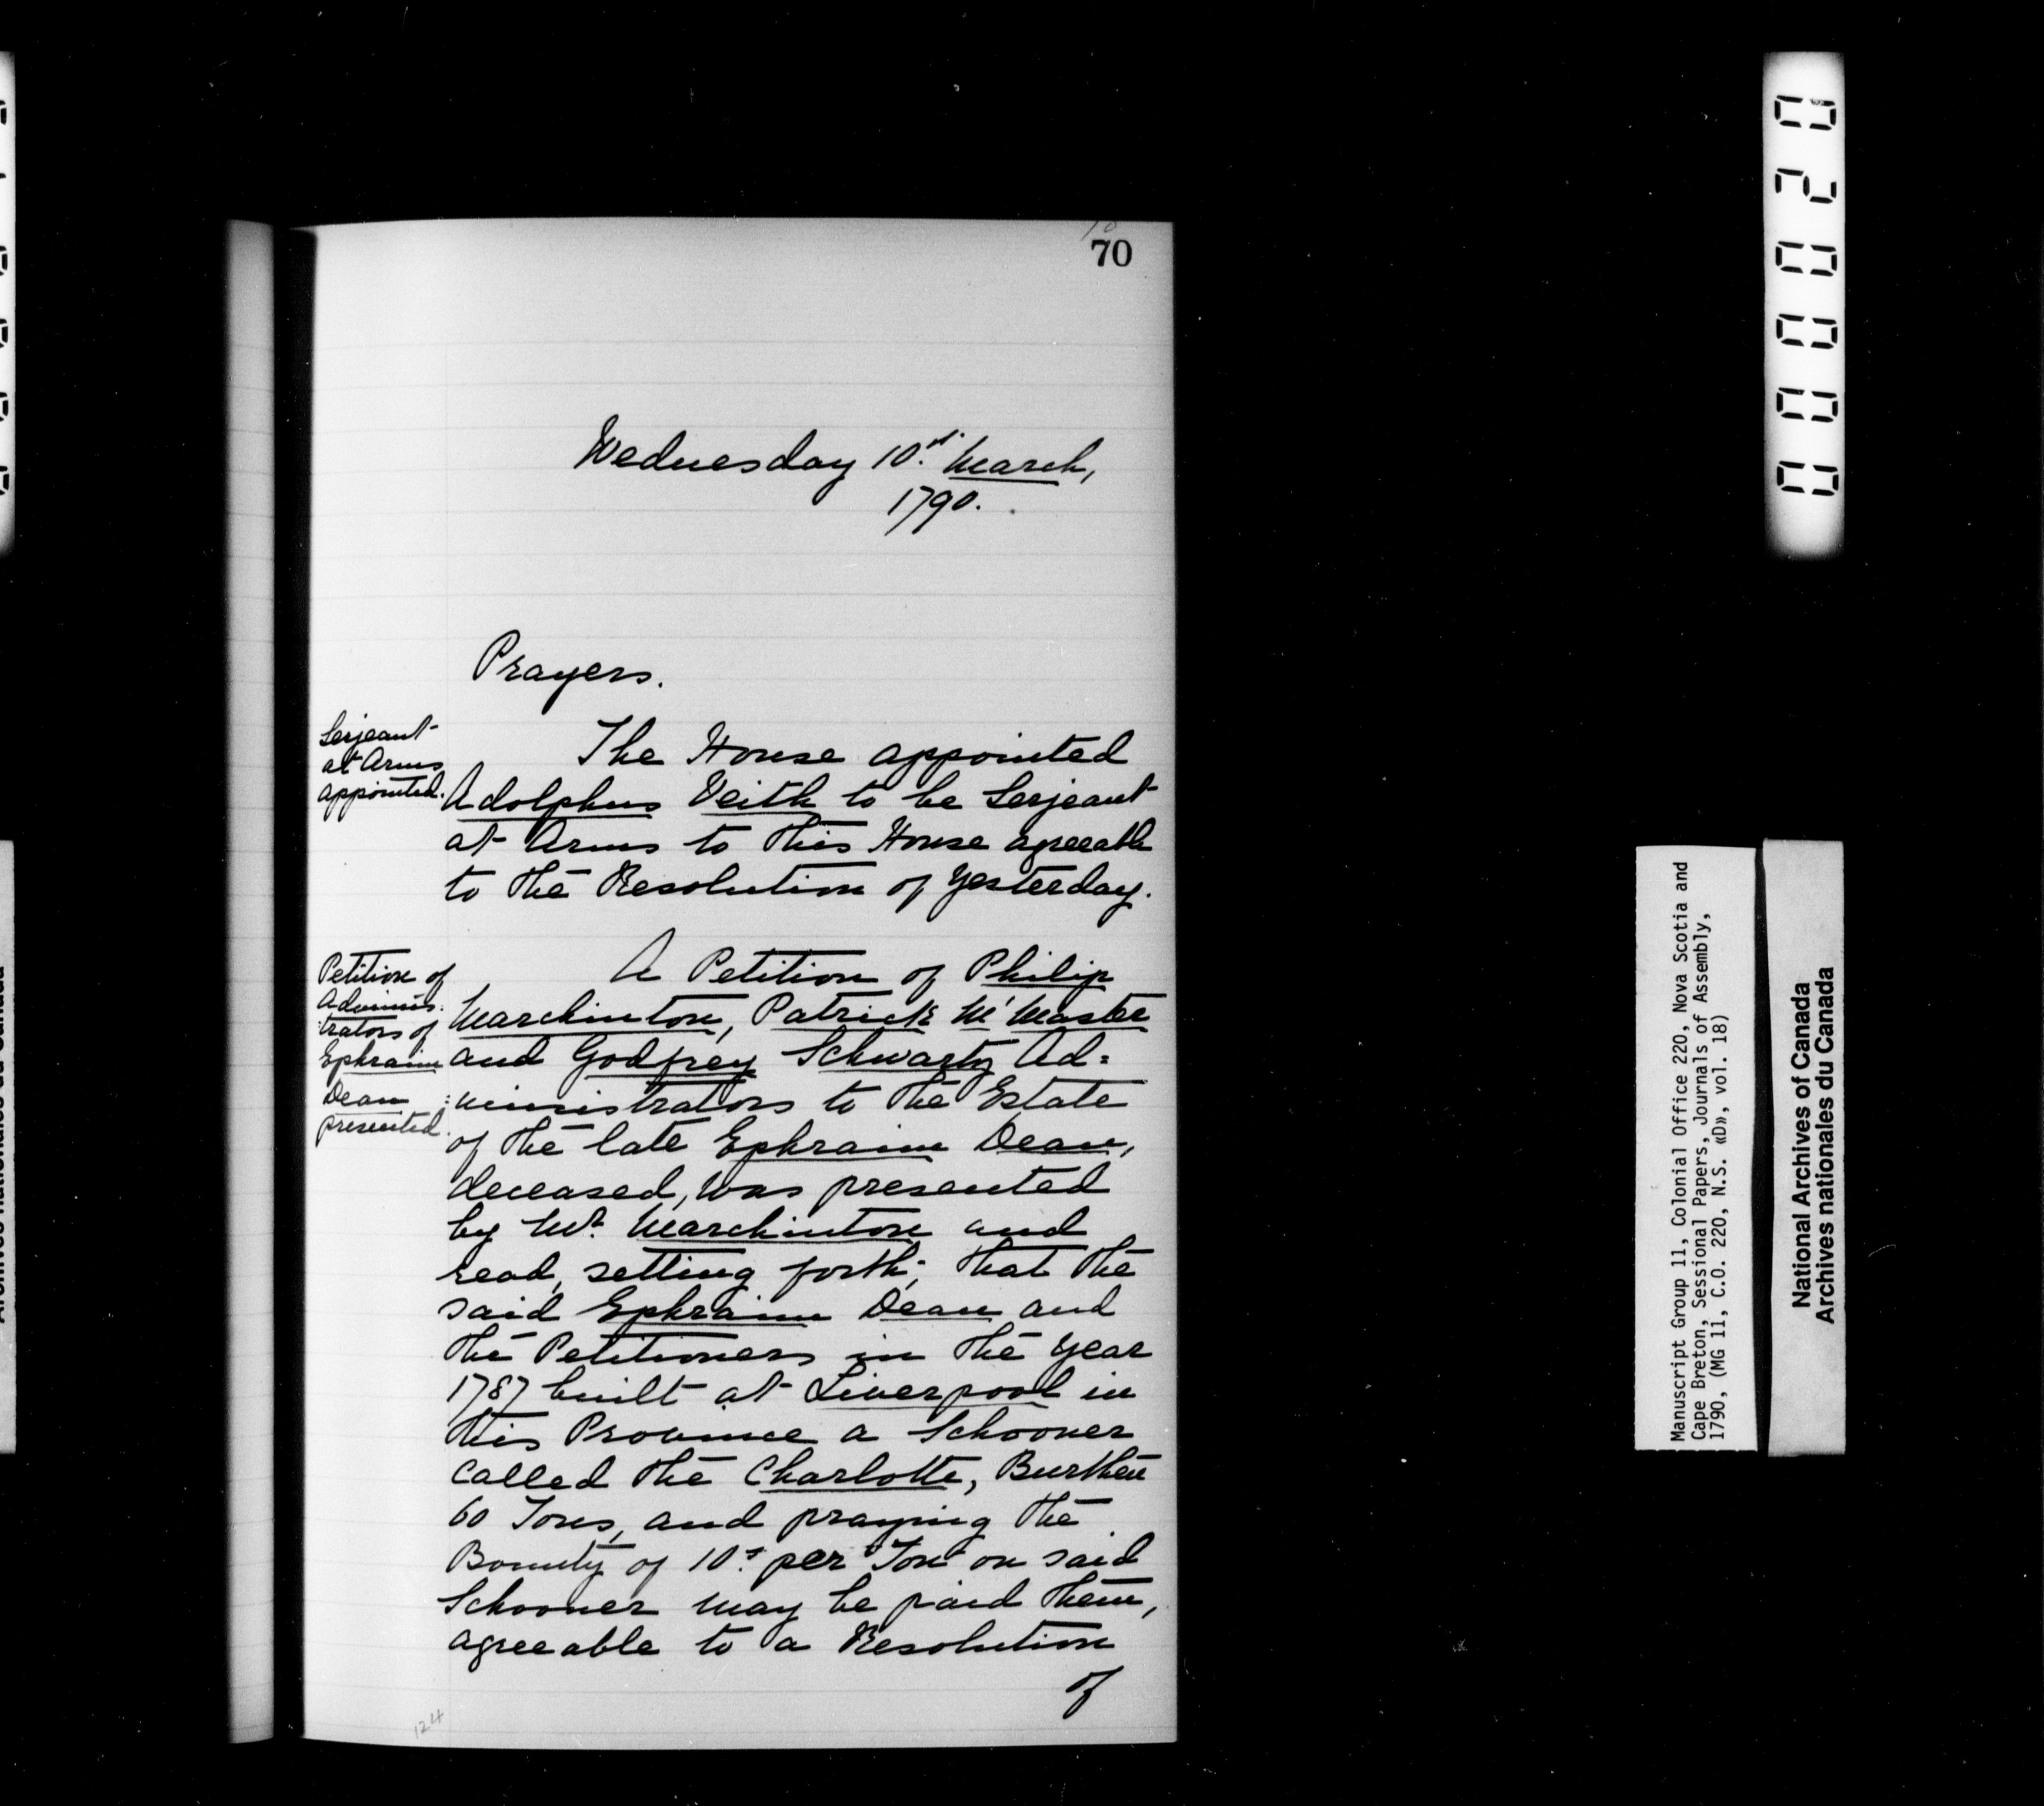 70
Wednesday 10th March,
1790.
Prayers.
Serjeant
at Arms
appointed.
The House appointed
Adolphus Veith to be Serjeant
at Arms to this House agreeable
to the Resolution of Yesterday.
Petition of
Adminis:
:trators of
Ephraim
Dean
presented.
A Petition of Philip
Marchinton, Patrick M'Master
and Godfrey Schwartz Ad=
:ministrators to the Estate
of the late Ephraim Dean,
deceased, was presented
by Mr. Marchinton and
read, setting forth; that the
said Ephraim Dean and
the Petitioners in the Year
1787 built at Liverpool in
this Province a Schooner
called the Charlotte, Burthen
60 Tons, and praying the
Bounty of 10s. per Ton on said
Schooner may be paid them,
agreeable to a Resolution
of
124
000020
Manuscript Group 11, Colonial Office 220, Nova Scotia and
Cape Breton, Sessional Papers, Journals of Assembly,
1790, (MG 11, C.O. 220, N.S. «D», vol. 18)
National Archives of Canada
Archives nationales du Canada